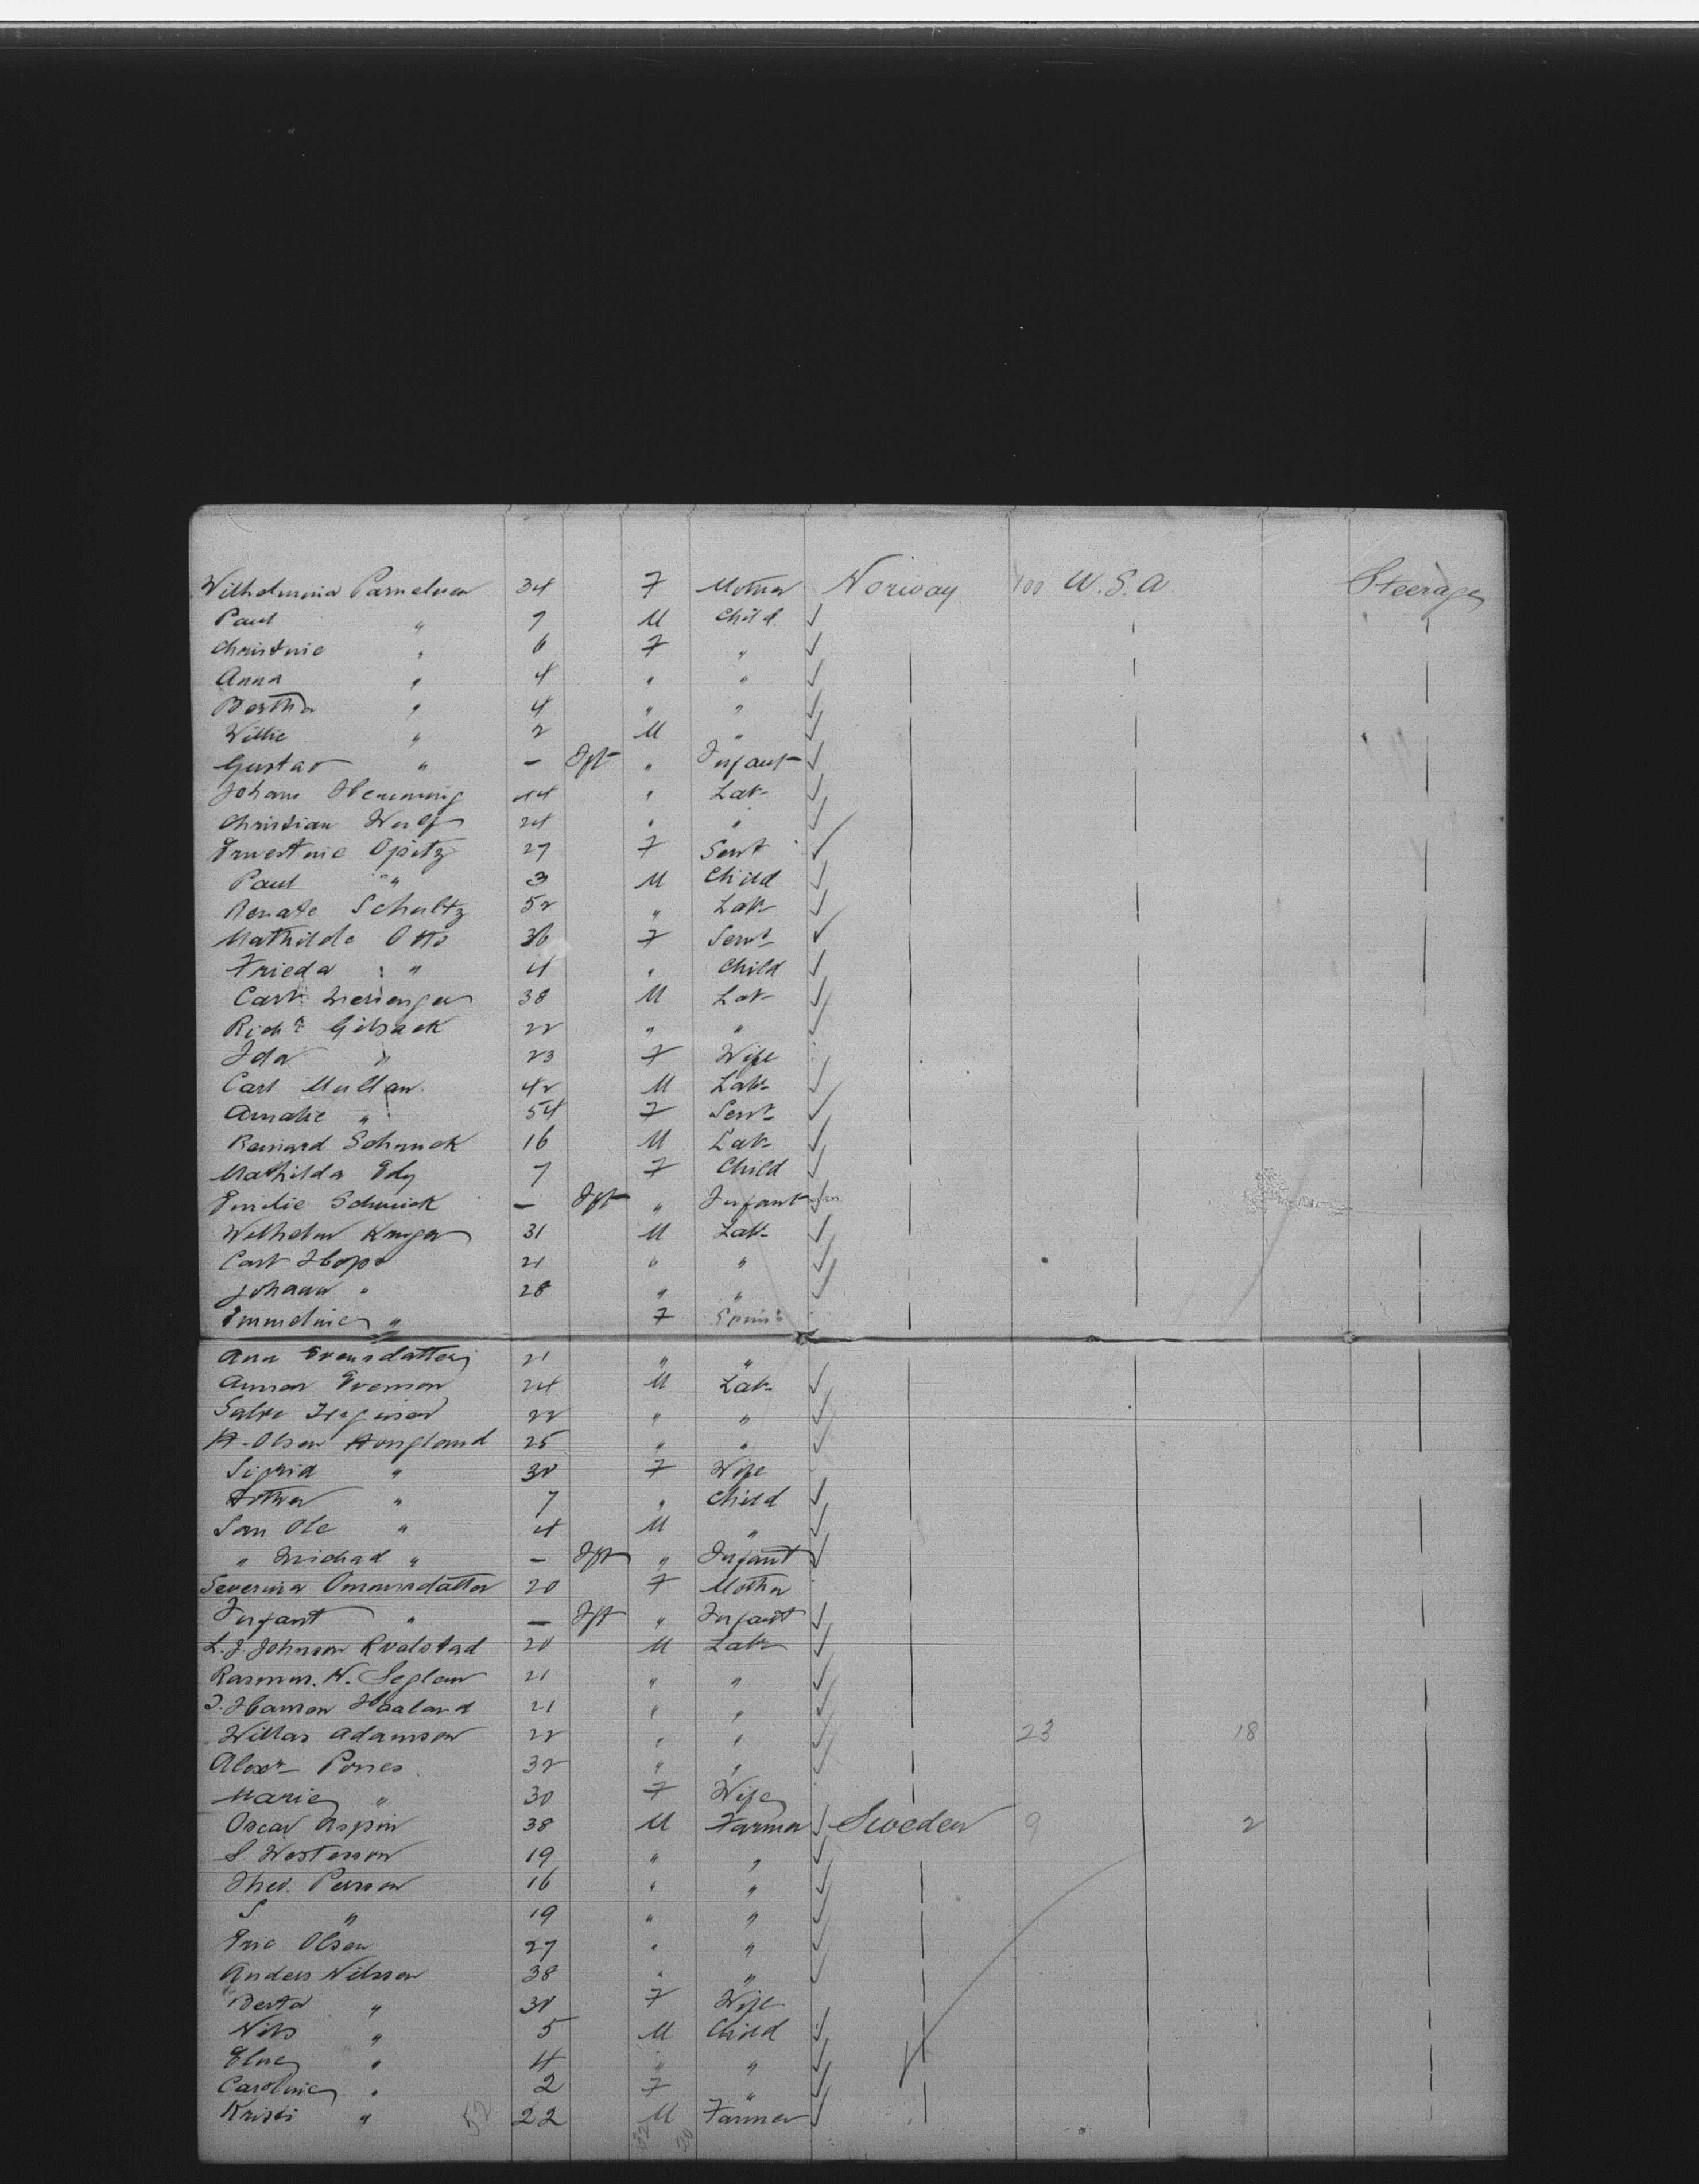 Wilhelmina Parnelman 34 F Mother Norway 100 U.S.A Steerage
Paul " 7 M Child
Christine " 6 F "
Anna " 4 " "
Bertha " 4 " "
Willie " 2 M "
Gustav " — Ift " Infant
Johann Henning 44 " Lab
Christian Wulf 24 " "
Ernestine Opitz 27 F Servt
Paul " 3 M Child
Renate Schultz 52 " Lab
Mathilde Otto 36 F Servt
Frieda " 4 " Child
Carl 38 M Lab
Richd Gilsack 22 " "
Ida " 23 F Wife
Carl Mullan 42 M Lab
Amalie " 54 F Servt
Reinard Schmuck 16 M Lab
Mathilda Edy 7 F Child
Emilie Schmick — Ift " Infant
Wilhelm Kruger 31 M Lab
Carl Hopp 21 " "
Johann " 28 " "
Emmeline " F Spins
Ann Evensdatter 21 " "
Evenson 24 M Lab
Salve 22 " "
A. Olsen Aongland 25 " "
Sigrid " 30 F Wife
" 7 " Child
San Ole " 4 M "
" Michael " — Ift " Infant
Severina Omundsdatter 20 F Mother
Infant " — Ift " Infant
L. J. Johnson Kvalstad 20 M Lab
Rasmus. N. Seglem 21 " "
J. Hanson Haaland 21 " "
Willas Adamson 22 " " 23 18
Alexr Pones 32 " "
Marie " 30 F Wife
Oscar Aspin 38 M Farmer Sweden 9 2
S. Westerson 19 " "
Theo. Persson 16 " "
S " 19 " "
Eric Olsen 27 " "
Anders Nilsson 38 " "
Berta " 30 F Wife
Nils " 5 M Child
Elne " 4 " "
Caroline " 2 F "
Kristi " 52 22 M Farmer
32 20